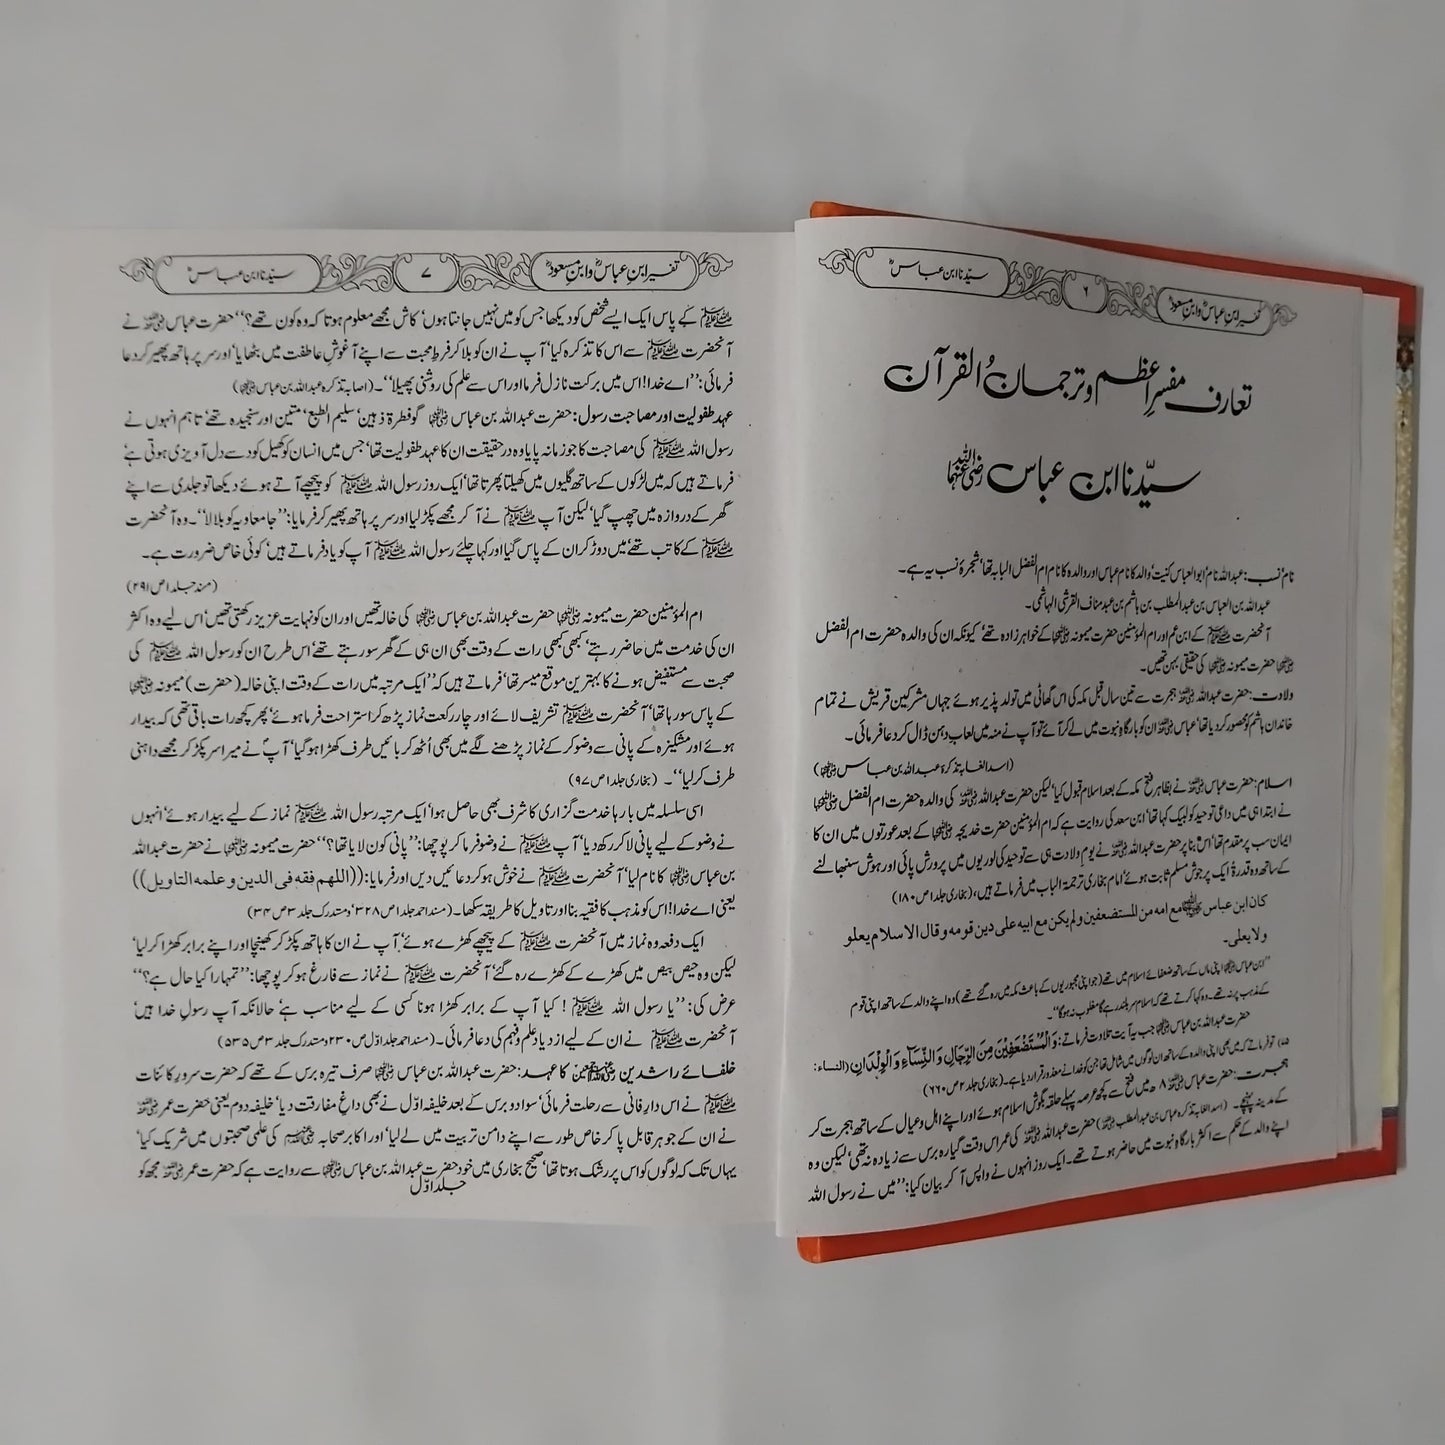 سیّدنا ابن عباسؓ
۶
تفسیر ابنِ عباسؓ و ابنِ مسعودؓ
تعارف مفسرِ اعظم و ترجمان القرآن
سیّدنا ابن عباس رضی اللہ عنہما
نام' نسب: عبداللہ نام' ابوالعباس کنیت' والد کا نام عباس اور والدہ کا نام ام الفضل البابہ تھا' شجرۂ نسب یہ ہے۔
عبداللہ بن العباس بن عبدالمطلب بن ہاشم بن عبدمناف القرشی الہاشمی۔
آنحضرت ﷺ کے ابن عم اور ام المؤمنین حضرت میمونہ رضی اللہ عنہا کے خواہر زادہ تھے' کیونکہ ان کی والدہ حضرت ام الفضل
رضی اللہ عنہا حضرت میمونہ رضی اللہ عنہا کی حقیقی بہن تھیں۔
ولادت: حضرت عبداللہ رضی اللہ عنہ ہجرت سے تین سال قبل مکہ کی اس گھاٹی میں تولد پذیر ہوئے جہاں مشرکین قریش نے تمام
خاندان ہاشم کو محصور کر دیا تھا' عباس رضی اللہ عنہ ان کو بارگاہِ نبوت میں لے کر آئے تو آپ نے منہ میں لعابِ دہن ڈال کر دعا فرمائی۔
(اسد الغابہ تذکرۂ عبداللہ بن عباس رضی اللہ عنہما)
اسلام: حضرت عباس رضی اللہ عنہ نے بظاہر فتح مکہ کے بعد اسلام قبول کیا' لیکن حضرت عبداللہ رضی اللہ عنہ کی والدہ حضرت ام الفضل رضی اللہ عنہا
نے ابتدا ہی میں داعیِ توحید کو لبیک کہا تھا' ابن سعد کی روایت ہے کہ ام المؤمنین حضرت خدیجہ رضی اللہ عنہا کے بعد عورتوں میں ان کا
ایمان سب پر مقدم تھا' اس بنا پر حضرت عبداللہ رضی اللہ عنہ نے یومِ ولادت ہی سے توحید کی لوریوں میں پرورش پائی اور ہوش سنبھالنے
کے ساتھ وہ قدرۃً ایک پرجوش مسلم ثابت ہوئے' امام بخاری ترجمۃ الباب میں فرماتے ہیں، (بخاری جلد ۱ ص ۱۸۰)
کان ابن عباس رضی اللہ عنہما مع امه من المستضعفین ولم یکن مع ابیه علی دین قومه و قال الاسلام یعلو
ولا یعلی۔
"ابن عباس رضی اللہ عنہما اپنی ماں کے ساتھ ضعفائے اسلام میں تھے (جو اپنی مجبوریوں کے باعث مکہ میں رہ گئے تھے) وہ اپنے والد کے ساتھ اپنی قوم
کے مذہب پر نہ تھے۔ وہ کہا کرتے تھے کہ اسلام سربلند رہے گا مغلوب نہ ہوگا"۔
حضرت عبداللہ بن عباس رضی اللہ عنہما جب یہ آیت تلاوت فرماتے: وَالْمُسْتَضْعَفِیْنَ مِنَ الرِّجَالِ وَالنِّسَآءِ وَالْوِلْدَانِ (النساء:
۷۵) تو فرماتے کہ میں بھی اپنی والدہ کے ساتھ ان لوگوں میں شامل تھا جن کو خدا نے معذور قرار دیا ہے۔ (بخاری جلد ۲ ص ۶۶۰)
ہجرت: حضرت عباس رضی اللہ عنہ ۸ھ میں فتح سے کچھ عرصہ پہلے حلقہ بگوش اسلام ہوئے اور اپنے اہل و عیال کے ساتھ ہجرت کر
کے مدینہ پہنچے۔ (اسد الغابہ تذکرہ عباس بن عبدالمطلب رضی اللہ عنہ) حضرت عبداللہ رضی اللہ عنہ کی عمر اس وقت گیارہ برس سے زیادہ نہ تھی' لیکن وہ
اپنے والد کے حکم سے اکثر بارگاہِ نبوت میں حاضر ہوتے تھے۔ ایک روز انہوں نے واپس آ کر بیان کیا: "میں نے رسول اللہ
سیّدنا ابن عباسؓ
۷
تفسیر ابنِ عباسؓ و ابنِ مسعودؓ
ﷺ کے پاس ایک ایسے شخص کو دیکھا جس کو میں نہیں جانتا ہوں' کاش مجھے معلوم ہوتا کہ وہ کون تھے؟" حضرت عباس رضی اللہ عنہ نے
آنحضرت ﷺ سے اس کا تذکرہ کیا' آپ نے ان کو بلا کر فرطِ محبت سے اپنے آغوشِ عاطفت میں بٹھایا' اور سر پر ہاتھ پھیر کر دعا
فرمائی: "اے خدا! اس میں برکت نازل فرما اور اس سے علم کی روشنی پھیلا"۔ (اصابہ تذکرہ عبداللہ بن عباس رضی اللہ عنہما)
عہد طفولیت اور مصاحبت رسول: حضرت عبداللہ بن عباس رضی اللہ عنہما گو فطرۃً ذہین' سلیم الطبع' متین اور سنجیدہ تھے' تاہم انہوں نے
رسول اللہ ﷺ کی مصاحبت کا جو زمانہ پایا وہ درحقیقت ان کا عہد طفولیت تھا' جس میں انسان کو کھیل کود سے دل آویزی ہوتی ہے'
فرماتے ہیں کہ میں لڑکوں کے ساتھ گلیوں میں کھیلتا پھرتا تھا' ایک روز رسول اللہ ﷺ کو پیچھے آتے ہوئے دیکھا تو جلدی سے اپنے
گھر کے دروازہ میں چھپ گیا' لیکن آپ ﷺ نے آ کر مجھے پکڑ لیا اور سر پر ہاتھ پھیر کر فرمایا: "جا معاویہ کو بلا لا"۔ وہ آنحضرت
ﷺ کے کاتب تھے' میں دوڑ کر ان کے پاس گیا اور کہا چلئے رسول اللہ ﷺ آپ کو یاد فرماتے ہیں' کوئی خاص ضرورت ہے۔
(مسند جلد ۱ ص ۲۹۱)
ام المؤمنین حضرت میمونہ رضی اللہ عنہا حضرت عبداللہ بن عباس رضی اللہ عنہما کی خالہ تھیں اور ان کو نہایت عزیز رکھتی تھیں' اس لیے وہ اکثر
ان کی خدمت میں حاضر رہتے' کبھی کبھی رات کے وقت بھی ان ہی کے گھر سو رہتے تھے' اس طرح ان کو رسول اللہ ﷺ کی
صحبت سے مستفیض ہونے کا بہترین موقع میسر تھا' فرماتے ہیں کہ "ایک مرتبہ میں رات کے وقت اپنی خالہ (حضرت) میمونہ رضی اللہ عنہا
کے پاس سو رہا تھا' آنحضرت ﷺ تشریف لائے اور چار رکعت نماز پڑھ کر استراحت فرما ہوئے' پھر کچھ رات باقی تھی کہ بیدار
ہوئے اور مشکیزہ کے پانی سے وضو کر کے نماز پڑھنے لگے میں بھی اُٹھ کر بائیں طرف کھڑا ہو گیا' آپؐ نے میرا سر پکڑ کر مجھے داہنی
طرف کر لیا"۔ (بخاری جلد ۱ ص ۹۷)
اسی سلسلہ میں بارہا خدمت گزاری کا شرف بھی حاصل ہوا' ایک مرتبہ رسول اللہ ﷺ نماز کے لیے بیدار ہوئے' انہوں
نے وضو کے لیے پانی لا کر رکھ دیا' آپ ﷺ نے وضو فرما کر پوچھا: "پانی کون لایا تھا؟" حضرت میمونہ رضی اللہ عنہا نے حضرت عبداللہ
بن عباس رضی اللہ عنہما کا نام لیا' آنحضرت ﷺ نے خوش ہو کر دعائیں دیں اور فرمایا: ((اللهم فقه فی الدین و علمه التاویل))
یعنی اے خدا! اس کو مذہب کا فقیہ بنا اور تاویل کا طریقہ سکھا۔ (مسند احمد جلد ۱ ص ۳۲۸' و مستدرک جلد ۳ ص ۳۴)
ایک دفعہ وہ نماز میں آنحضرت ﷺ کے پیچھے کھڑے ہوئے' آپ نے ان کا ہاتھ پکڑ کر کھینچا اور اپنے برابر کھڑا کر لیا'
لیکن وہ حیص بیص میں کھڑے کے کھڑے رہ گئے' آنحضرت ﷺ نے نماز سے فارغ ہو کر پوچھا: "تمہارا کیا حال ہے؟"
عرض کی: "یا رسول اللہ ﷺ! کیا آپ کے برابر کھڑا ہونا کسی کے لیے مناسب ہے' حالانکہ آپ رسولِ خدا ہیں'
آنحضرت ﷺ نے ان کے لیے ازدیادِ علم و فہم کی دعا فرمائی۔ (مسند احمد جلد اوّل ص ۲۳۰ و مستدرک جلد ۳ ص ۵۳۵)
خلفائے راشدین رضی اللہ عنہم کا عہد: حضرت عبداللہ بن عباس رضی اللہ عنہما صرف تیرہ برس کے تھے کہ حضرت سرورِ کائنات
ﷺ نے اس دارِ فانی سے رحلت فرمائی' سوا دو برس کے بعد خلیفہ اوّل نے بھی داغِ مفارقت دیا' خلیفہ دوم یعنی حضرت عمر رضی اللہ عنہ
نے ان کے جوہرِ قابل پا کر خاص طور سے اپنے دامن تربیت میں لے لیا' اور اکابر صحابہ رضی اللہ عنہم کی علمی صحبتوں میں شریک کیا'
یہاں تک کہ لوگوں کو اس پر رشک ہوتا تھا' صحیح بخاری میں خود حضرت عبداللہ بن عباس رضی اللہ عنہما سے روایت ہے کہ حضرت عمر رضی اللہ عنہ مجھ کو
جلد اوّل